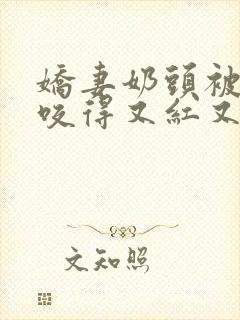 嬌妻奶頭被
咬得又紅又
文知照